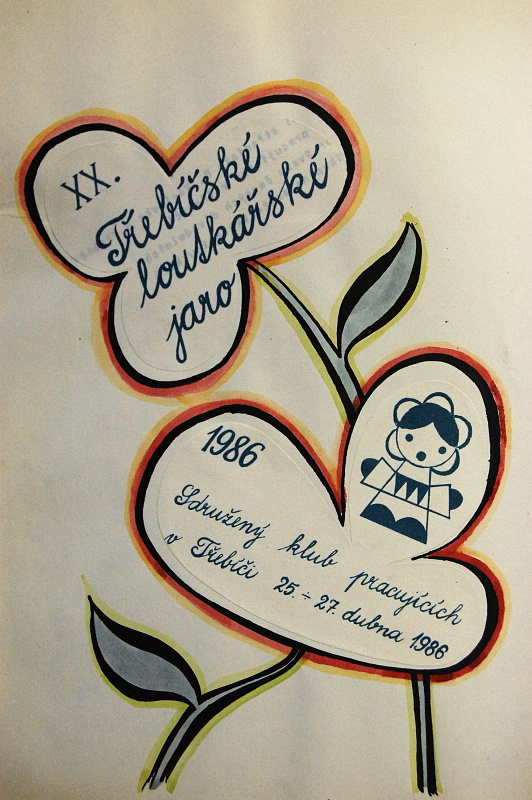 XX.
Třebíčské
loutkářské
jaro
1986
Sdružený klub pracujících
v Třebíči 25. ÷ 27. dubna 1986